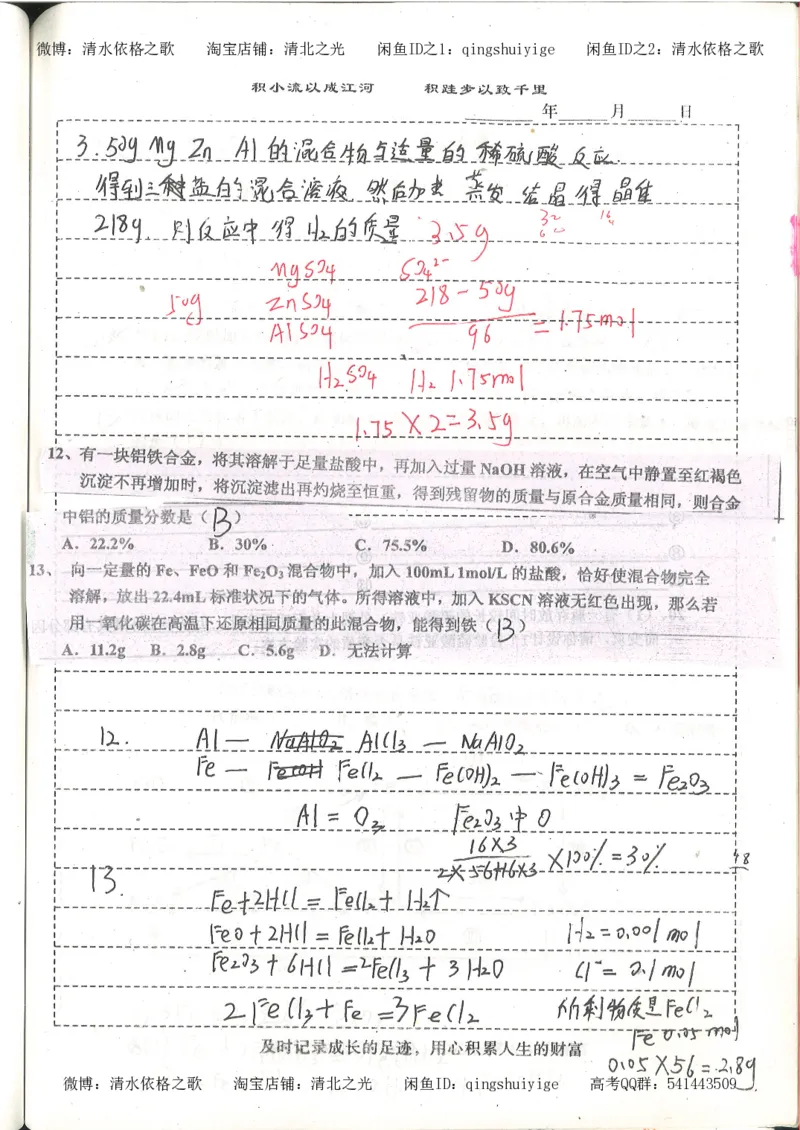 微博：清水依格之歌 淘宝店铺：清北之光 闲鱼ID之1：qingshuiyige 闲鱼ID之2：清水依格之歌
积小流以成江河 积跬步以致千里
年 月 日
3. 50g Mg Zn Al 的混合物与适量的稀硫酸反应
得到三种盐的混合溶液 然后加热 蒸发 结晶 得 晶体
218g. 则反应中得 H2的质量 3.5g
MgSO4 SO4²⁻
50g ZnSO4 218-50g
AlSO4 96 = 1.75mol
H2SO4 H2 1.75mol
1.75 × 2 = 3.5g
12、有一块铝铁合金，将其溶解于足量盐酸中，再加入过量 NaOH 溶液，在空气中静置至红褐色
沉淀不再增加时，将沉淀滤出再灼烧至恒重，得到残留物的质量与原合金质量相同，则合金
中铝的质量分数是（B）
A．22.2% B．30% C．75.5% D．80.6%
13、 向一定量的 Fe、FeO 和 Fe2O3 混合物中，加入 100mL 1mol/L 的盐酸，恰好使混合物完全
溶解，放出 22.4mL 标准状况下的气体。所得溶液中，加入 KSCN 溶液无红色出现，那么若
用一氧化碳在高温下还原相同质量的此混合物，能得到铁（B）
A．11.2g B．2.8g C．5.6g D．无法计算
12. Al — NaAlO2 AlCl3 — NaAlO2
Fe — FeCl2 — Fe(OH)2 — Fe(OH)3 = Fe2O3
Al = O3 Fe2O3中O
16×3
2×56+16×3 ×100% = 30% 48
13.
Fe+2HCl = FeCl2+ H2↑
FeO+2HCl = FeCl2+ H2O H2=0.001mol
Fe2O3+6HCl =2FeCl3 + 3H2O Cl⁻= 0.1mol
2FeCl3+Fe =3FeCl2 所剩物质是FeCl2
Fe 0.05mol
及时记录成长的足迹，用心积累人生的财富
0.05×56=2.8g
微博：清水依格之歌 淘宝店铺：清北之光 闲鱼ID：qingshuiyige 高考QQ群：541443509